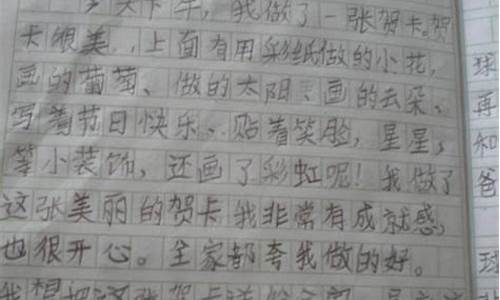 天下午，我做了一张贺卡。贺
卡很美，上面有用彩纸做的小花，
画的葡萄、做的太阳、画的云朵、
写着节日快乐、贴着笑脸，星星，
等小装饰，还画了彩虹呢！我做了
这张美丽的贺卡我非常有成就感，
也很开心。全家都夸我做的好。
我想把这张贺卡送给
球
再
和
爸
球